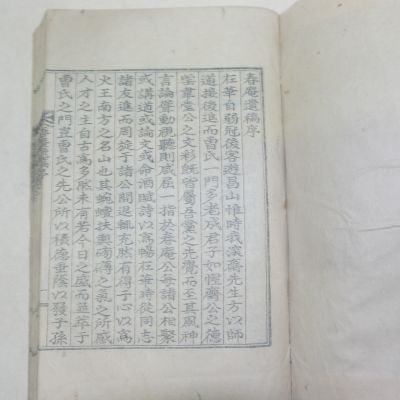 春庵遺稿序
在華自弱冠後客遊昌山雅時我深齋先生方以師
道接後進而曺氏一門多老成君子如惺齋公之德
雲華堂公之文彩皆屬吾黨之先覺而至其風神
言論聳動視聽則咸屈一指於春庵公每諸公相聚
或講道或論文或命酒賦詩以爲暢在華時從同志
諸友進而周旋于諸公間退輒充然有得于心以爲
火王南方之名山也其蜿蟺扶輿磅礴之氣之所感
人才之生自古爲多然未有若今日之盛而並萃于
曺氏之門豈曺氏之先公所以積德垂蔭以發子孫